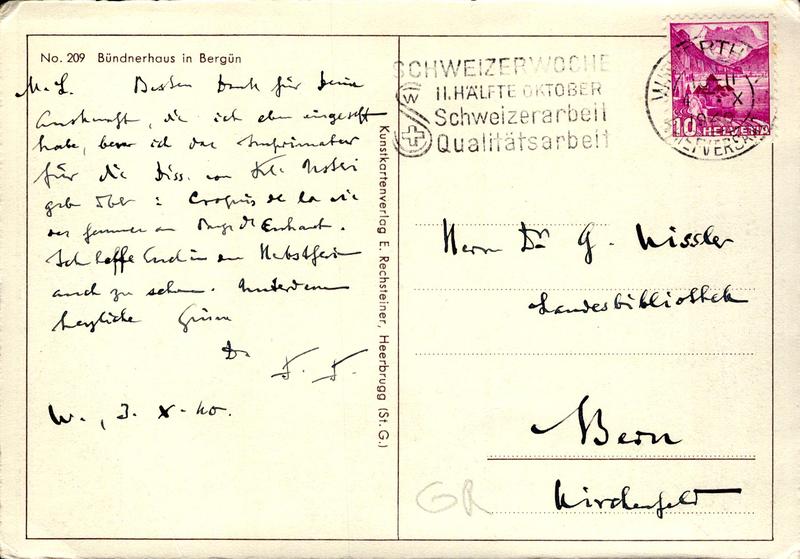 No. 209 Bündnerhaus in Bergün
M. L. Besten Dank für Deine
Auskunft, die ich eben eingeseh
habe, bevor ich das Imprimatur
für die Diss. von Frl.
gebe über : Croquis de la vie
des femmes au Pays d'Enhaut.
Ich hoffe Euch in den Herbstferien
auch zu sehen. Unterdessen
herzliche Grüsse
Dr
J. J.
W., 3. X. 40.
Kunstkartenverlag E. Rechsteiner, Heerbrugg (St. G.)
SCHWEIZERWOCHE
II. HÄLFTE OKTOBER
Schweizerarbeit
Qualitätsarbeit
W
10 HELVETIA
Herrn Dr G. Wissler
Landesbibliothek
Bern
Kirchenfeld
GR